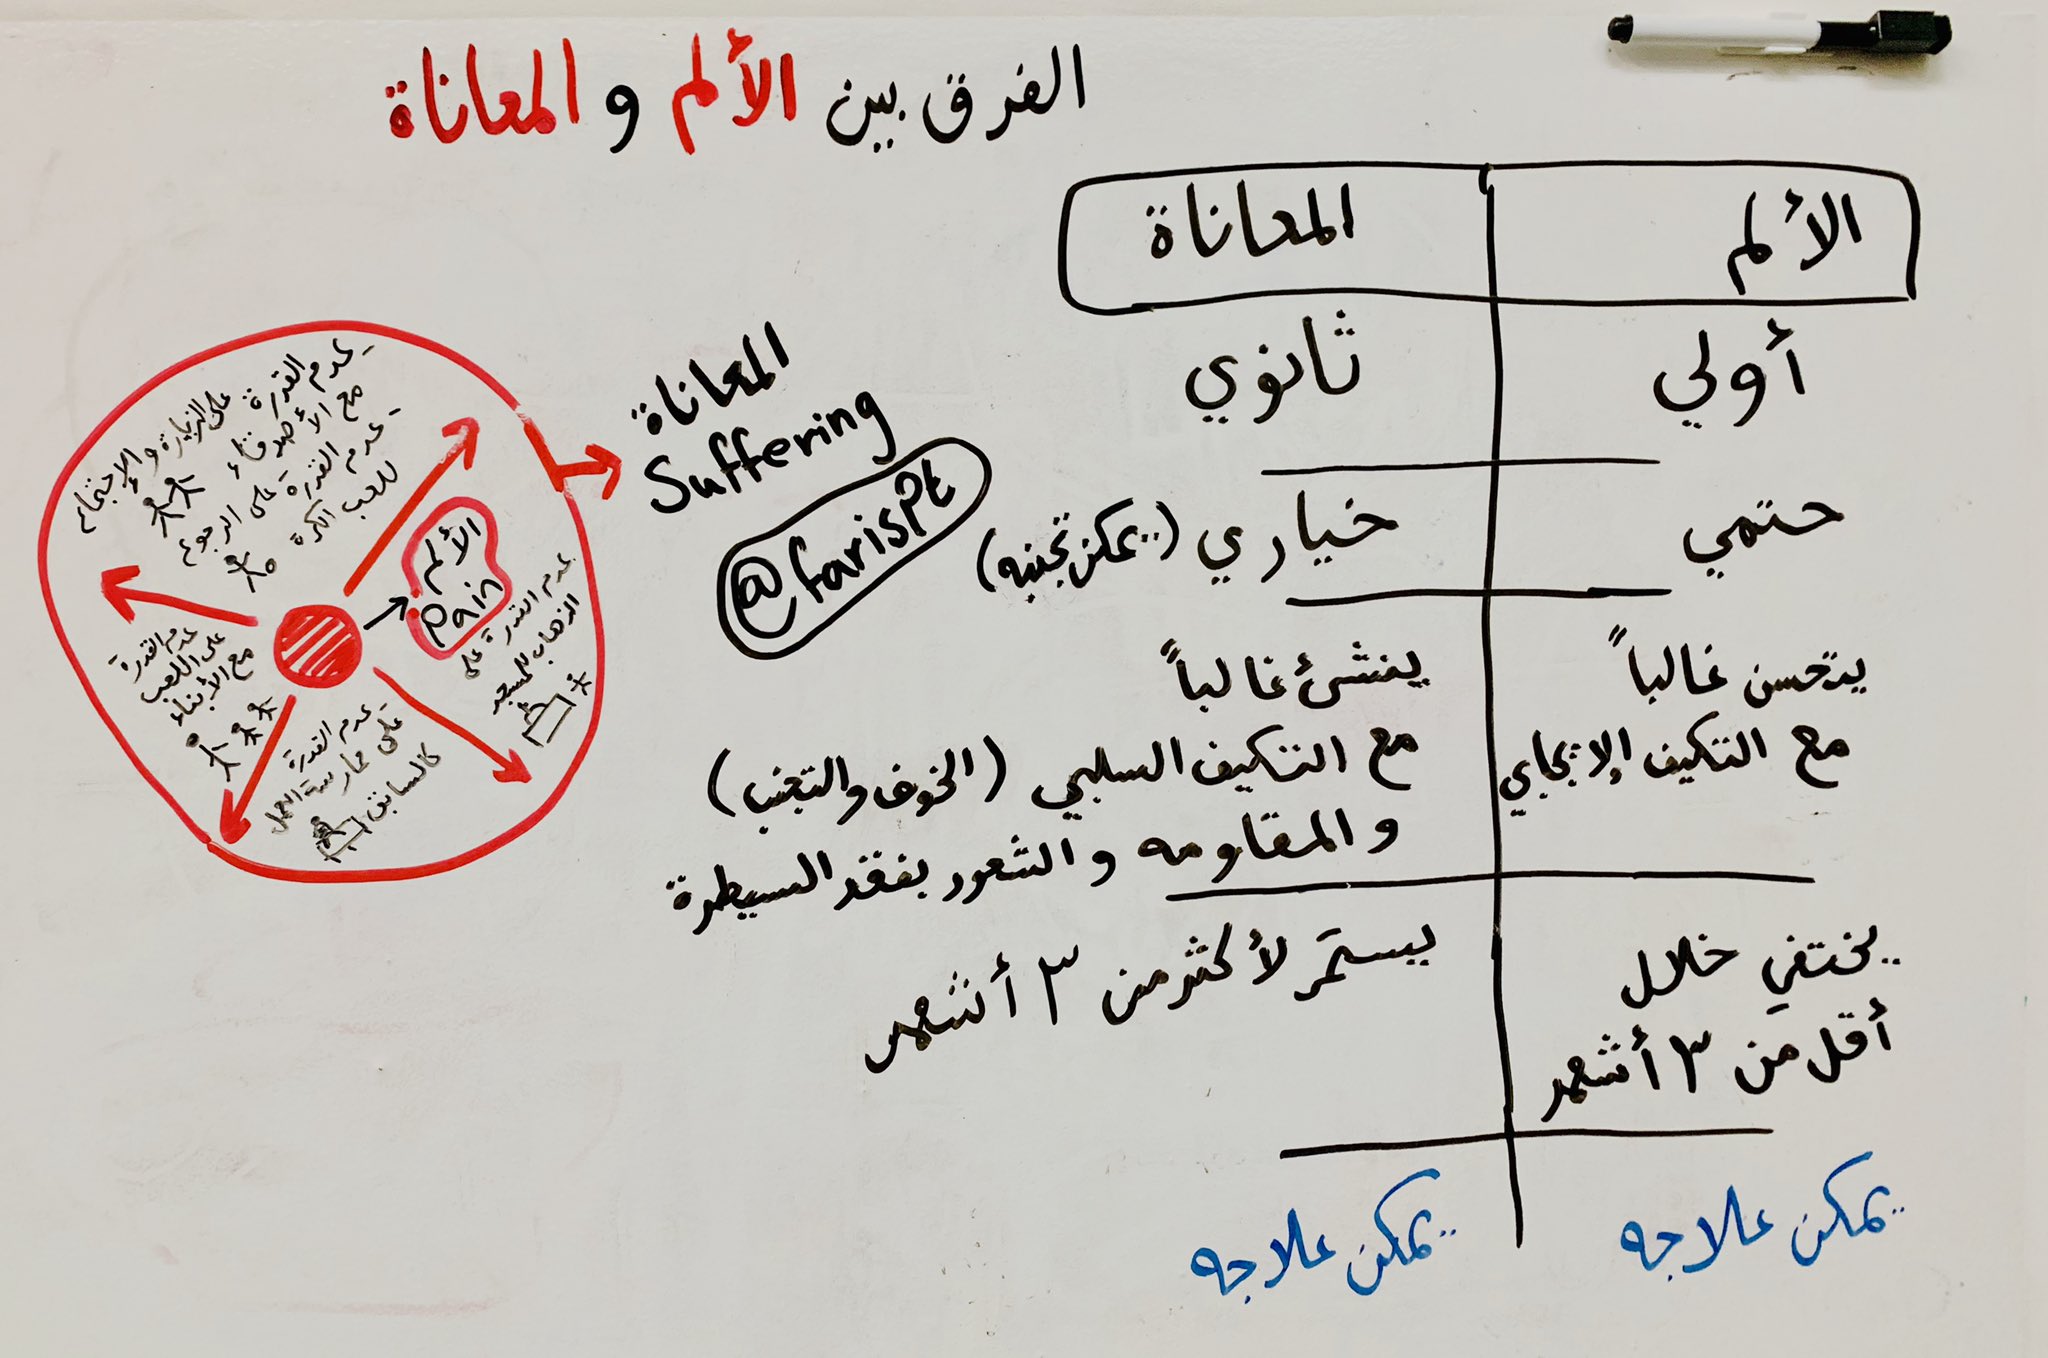 الفرق بين الألم و المعاناة
الألم
المعاناة
أولي
ثانوي
حتمي
خياري (يمكن تجنبه)
يتحسن غالباً
مع التكيف الإيجابي
ينشئ غالباً
مع التكيف السلبي (الخوف والتجنب)
و المقاومه و الشعور بفقد السيطرة
يختفي خلال
أقل من ٣ أشهر
يستمر لأكثر من ٣ أشهر
يمكن علاجه
يمكن علاجه
المعاناة
Suffering
@farisPt
- عدم القدرة على الزيارة و الإجتماع
مع الأصدقاء
- عدم القدرة على الرجوع
للعب الكرة
الألم
Pain
عدم القدرة على
الذهاب للمسجد
عدم القدرة
على اللعب
مع الأبناء
عدم القدرة
على ممارسة العمل
كالسابق